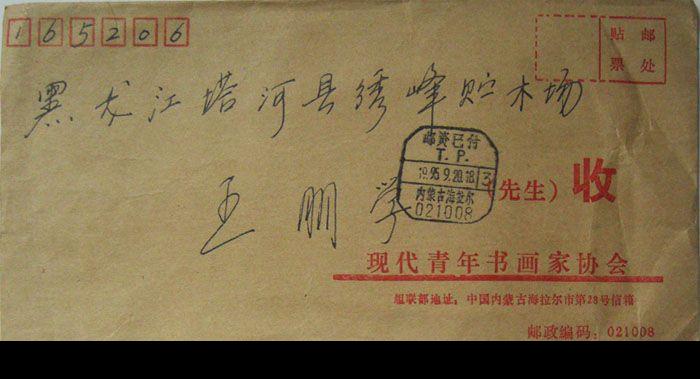 165206
贴 邮
票 处
黑龙江塔河县绣峰贮木场
邮资已付
T. P.
1995.9.20.18 3
内蒙古海拉尔
021008
王朋学 (先生) 收
现代青年书画家协会
组联部地址：中国内蒙古海拉尔市第28号信箱
邮政编码：021008